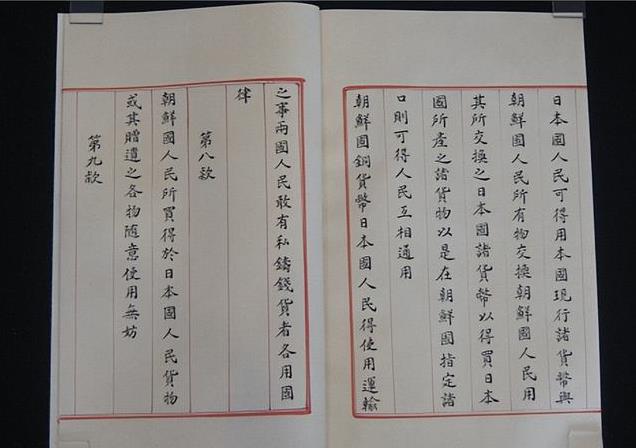 日本國人民可得用本國現行諸貨幣與
朝鮮國人民所有物交換朝鮮國人民用
其所交換之日本國諸貨幣以得買日本
國所產之諸貨物以是在朝鮮國指定諸
口則可得人民互相通用
朝鮮國銅貨幣日本國人民得使用運輸
之事兩國人民敢有私鑄錢貨者各用國
律
第八款
朝鮮國人民所買得於日本國人民貨物
或其贈遺之各物隨意使用無妨
第九款